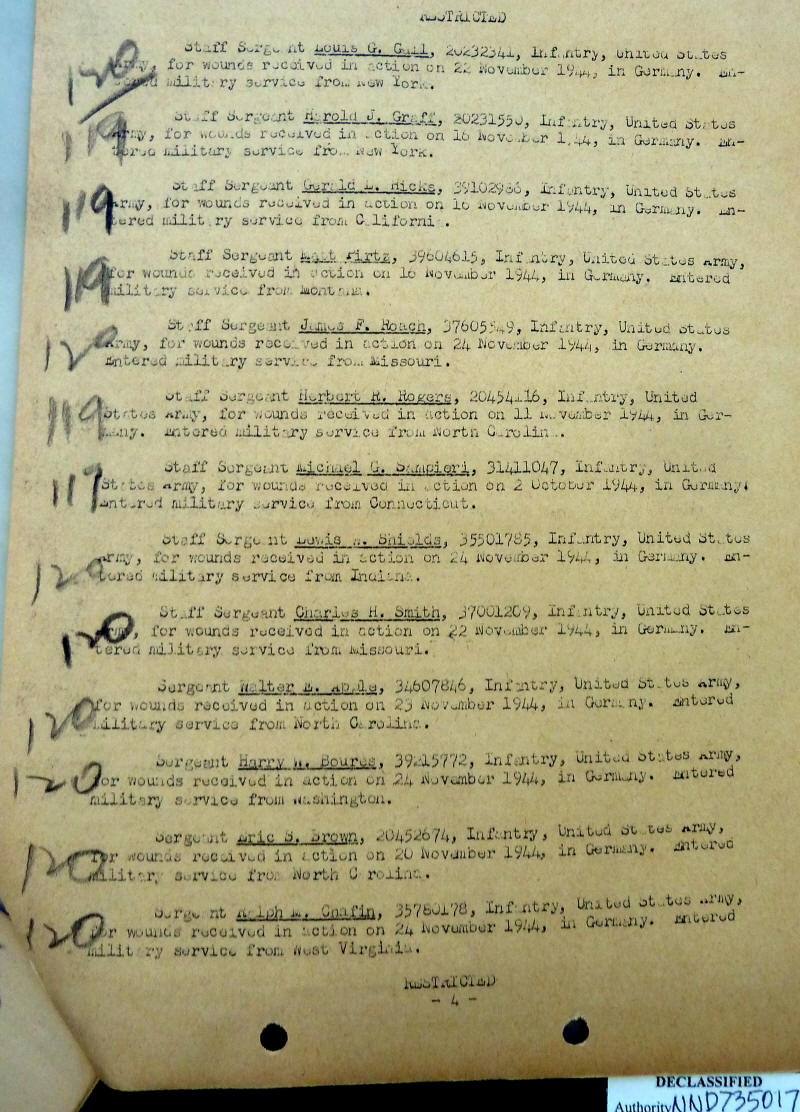 RESTRICTED
120 Staff Sergeant Louis G. Gull, 20232341, Infantry, United States
Army, for wounds received in action on 22 November 1944, in Germany. En-
tered military service from New York.
119 Staff Sergeant Harold J. Graff, 20231550, Infantry, United States
Army, for wounds received in action on 16 November 1944, in Germany. En-
tered military service from New York.
119 Staff Sergeant Gerald L. Hicks, 39102936, Infantry, United States
Army, for wounds received in action on 16 November 1944, in Germany. En-
tered military service from California.
119 Staff Sergeant 39604615, Infantry, United States Army,
for wounds received in action on 16 November 1944, in Germany. Entered
military service from Montana.
120 Staff Sergeant James F. Roach, Infantry, United States
Army, for wounds received in action on 24 November 1944, in Germany.
Entered military service from Missouri.
119 Staff Sergeant Herbert H. Rogers, 20454216, Infantry, United
States Army, for wounds received in action on 11 November 1944, in Ger-
many. Entered military service from North Carolina.
117 Staff Sergeant Michael G. Sampieri, 31411047, Infantry, United
States Army, for wounds received in action on 2 October 1944, in Germany.
Entered military service from Connecticut.
120 Staff Sergeant Lewis Shields, 35501785, Infantry, United States
Army, for wounds received in action on 24 November 1944, in Germany. En-
tered military service from Indiana.
120 Staff Sergeant Charles H. Smith, 37001209, Infantry, United States
Army, for wounds received in action on 22 November 1944, in Germany. En-
tered military service from Missouri.
120 Sergeant Walter 34607846, Infantry, United States Army,
for wounds received in action on 23 November 1944, in Germany. Entered
military service from North Carolina.
120 Sergeant Harry 39215772, Infantry, United States Army,
for wounds received in action on 24 November 1944, in Germany. Entered
military service from Washington.
120 Sergeant Eric S. Brown, 20452674, Infantry, United States Army,
for wounds received in action on 20 November 1944, in Germany. Entered
military service from North Carolina.
120 Sergeant Ralph E. Chafin, 35780178, Infantry, United States Army,
for wounds received in action on 24 November 1944, in Germany. Entered
military service from West Virginia.
RESTRICTED
- 4 -
DECLASSIFIED
Authority NND735017